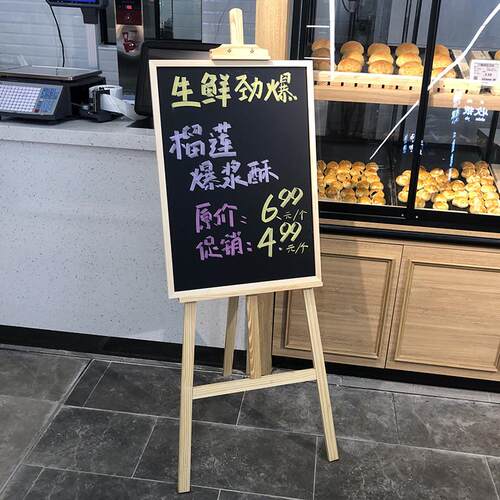 生鲜劲爆
榴莲
爆浆酥
原价: 6.99元/个
促销: 4.99元/个